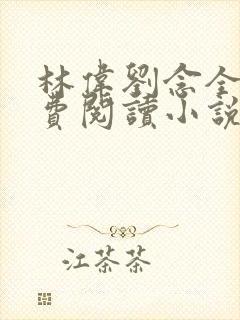 林偉劉念全
費閱讀小說
江茶茶